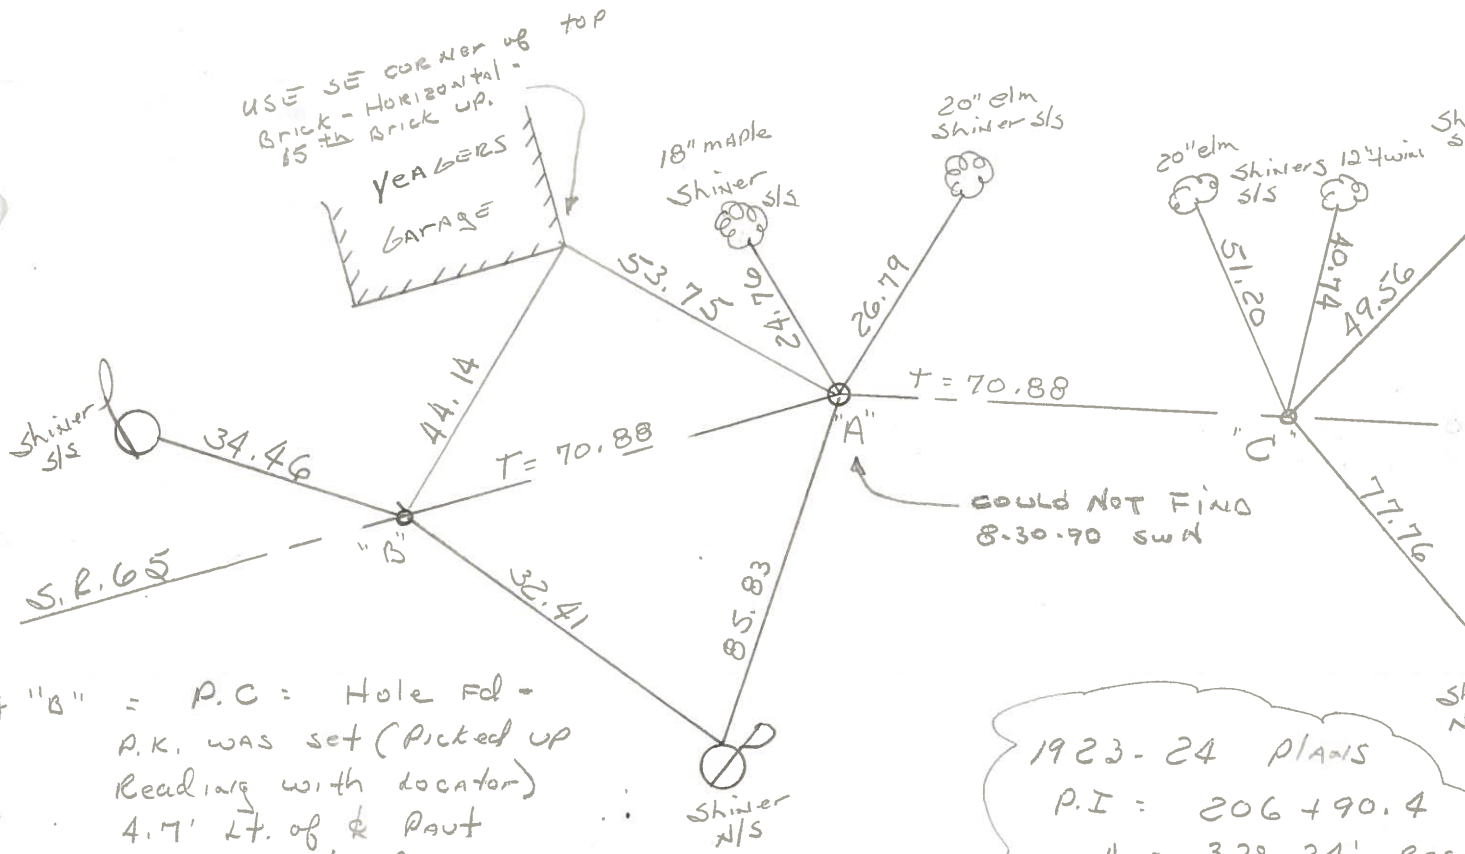 USE SE CORNER of TOP
Brick - HORIZONTAL -
15th Brick UP.
YEAGERS
GARAGE
18" MAPLE
Shiner
S/S
20" elm
Shiner S/S
20" elm
Shiners 12" twins
S/S
Sh
S
53.75
24.76
26.79
51.20
40.74
49.56
44.14
Shiner
S/S
34.46
T = 70.88
T = 70.88
"A"
"C"
"B"
COULD NOT FIND
8.30.90 SWN
S.R. 65
32.41
85.83
77.76
"B" = P.C = Hole Fd -
P.K. WAS set (Picked UP
Reading with Locator)
4.7' Lt. of ℄ PAVT
Shiner
N/S
Sh
N
1923-24 PLANS
P.I = 206+90.4